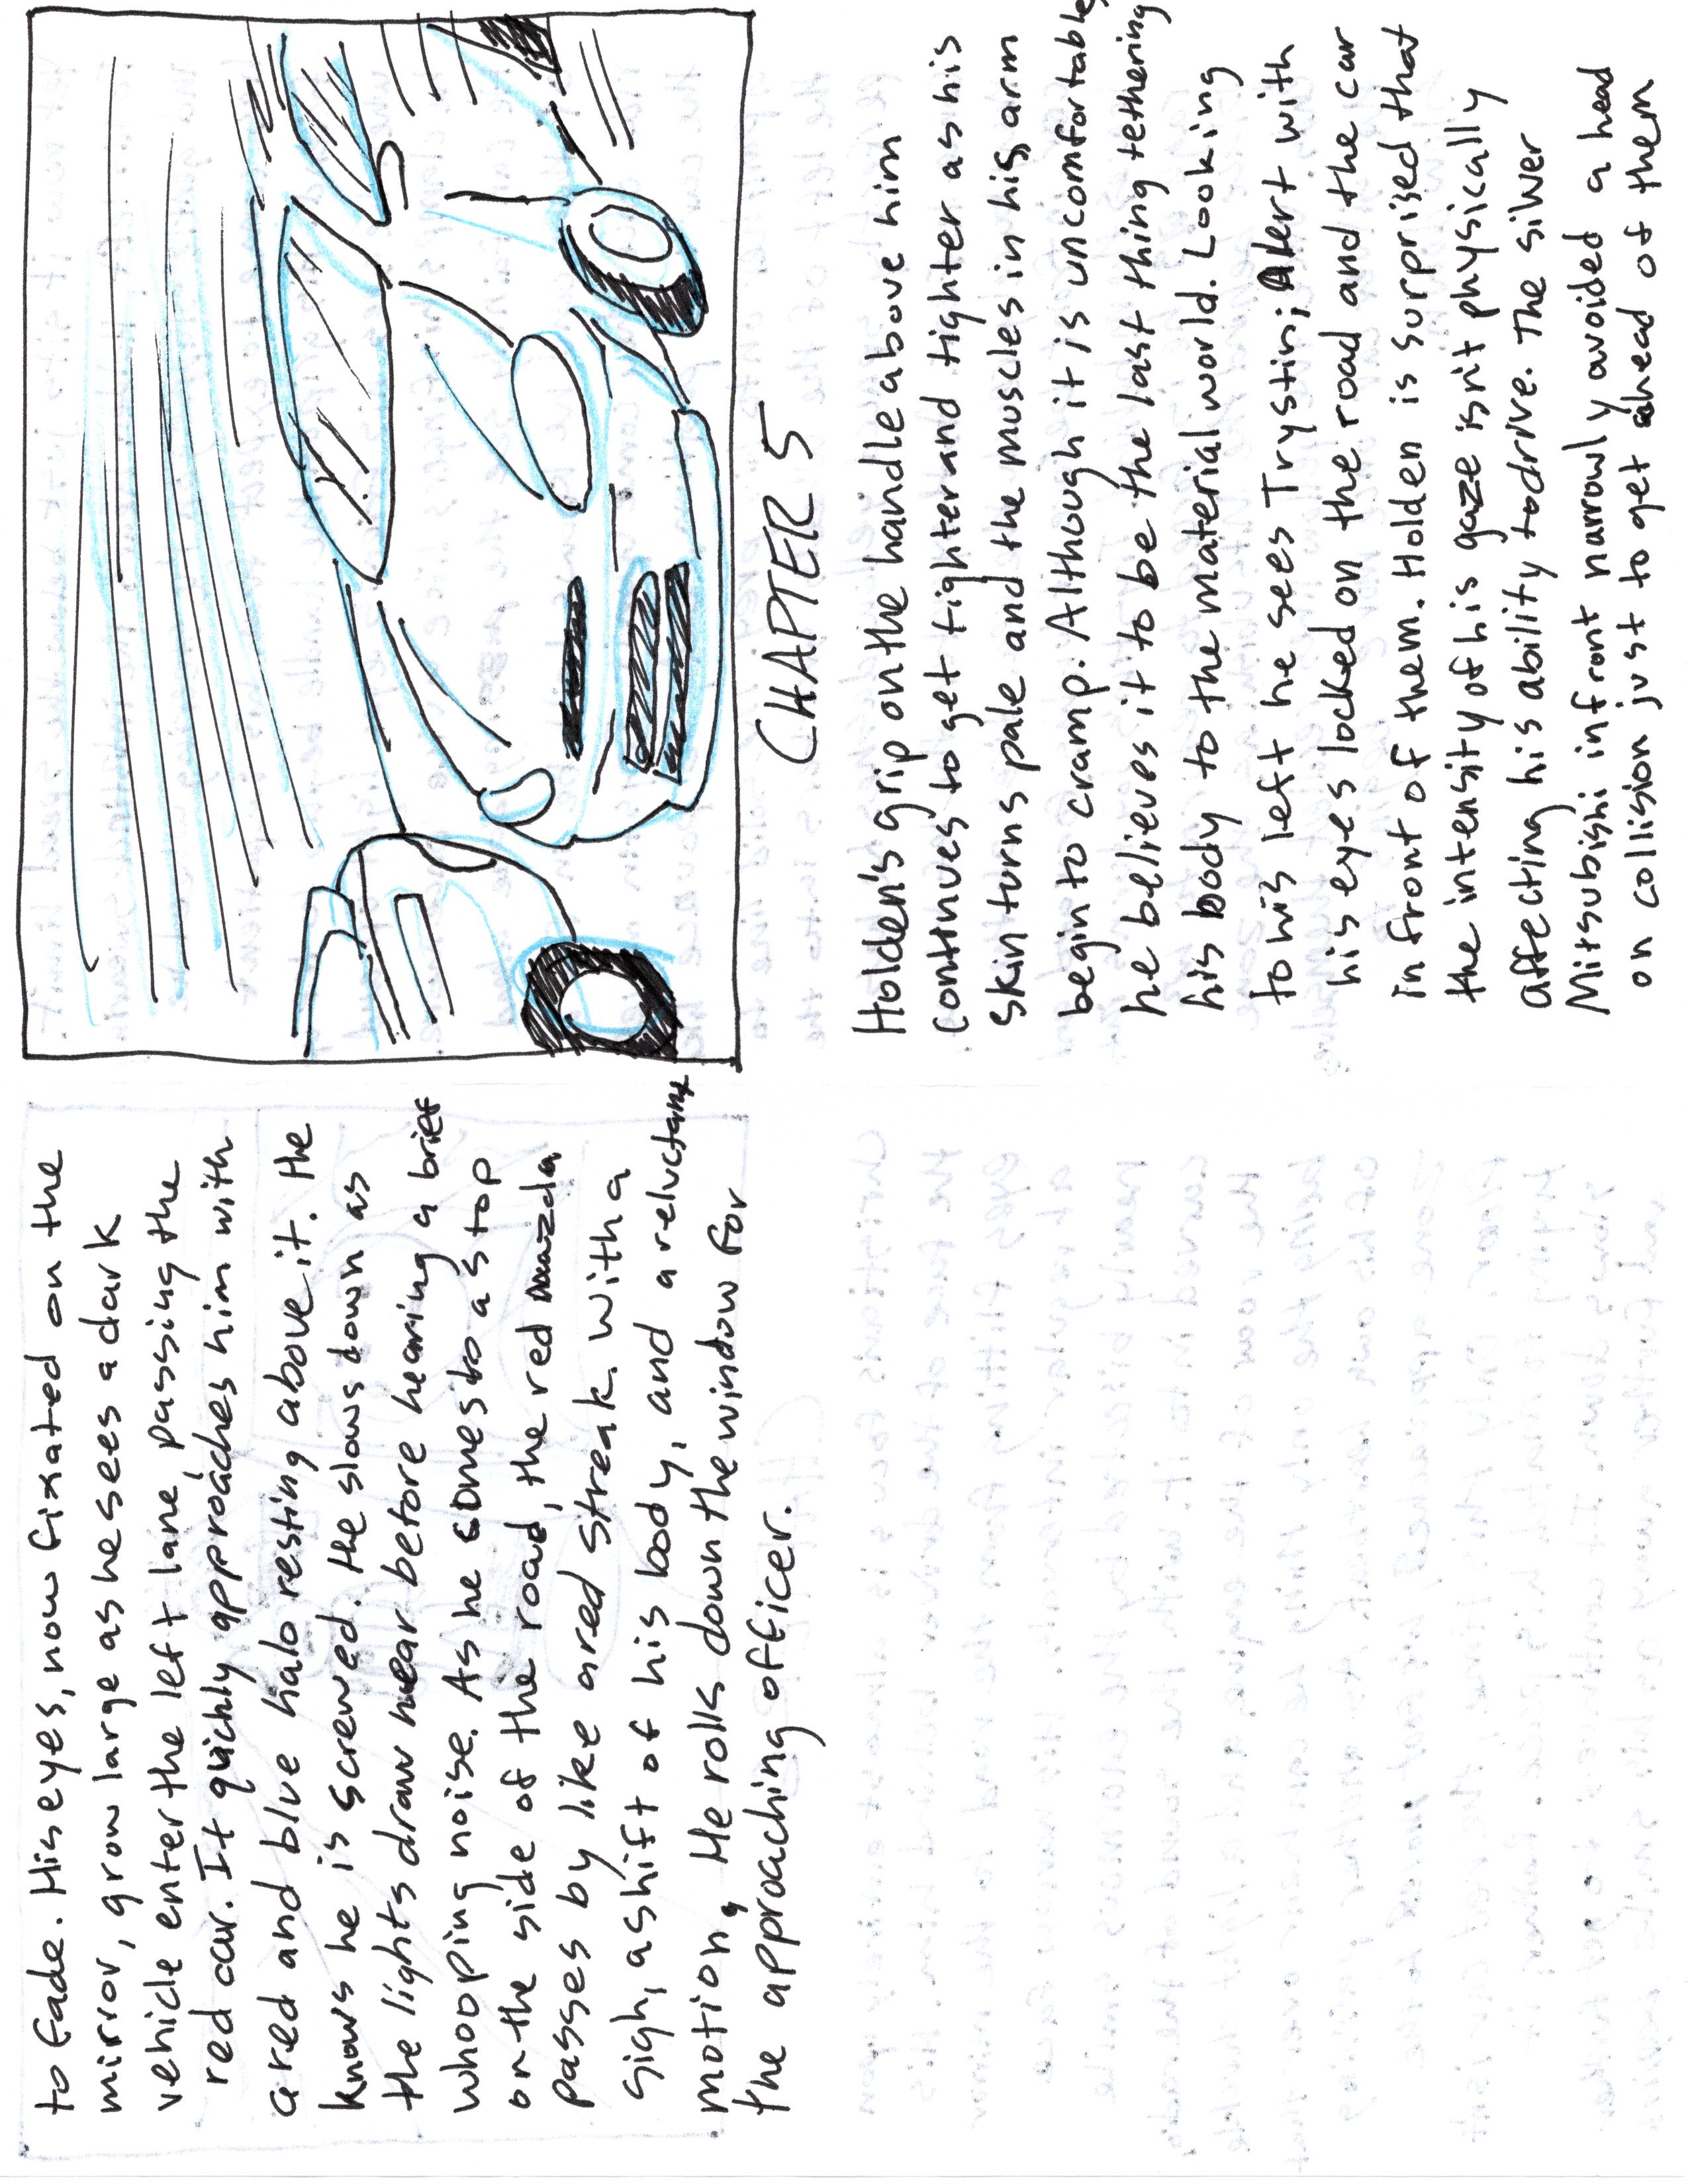 to fade. His eyes, now fixated on the
mirror, grow large as he sees a dark
vehicle enter the left lane, passing the
red car. It quickly approaches him with
a red and blue halo resting above it. He
knows he is screwed. He slows down as
the lights draw near before hearing a brief
whooping noise. As he comes to a stop
on the side of the road, the red mazda
passes by like a red streak. With a
sigh, a shift of his body, and a reluctant
motion, He rolls down the window for
the approaching officer.
CHAPTER 5
Holden's grip on the handle above him
continues to get tighter and tighter as his
skin turns pale and the muscles in his arm
begin to cramp. Although it is uncomfortable,
he believes it to be the last thing tethering
his body to the material world. Looking
to his left he sees Trystin; Alert with
his eyes locked on the road and the car
in front of them. Holden is surprised that
the intensity of his gaze isn't physically
affecting his ability to drive. The silver
Mitsubishi in front narrowly avoided a head
on collision just to get ahead of them